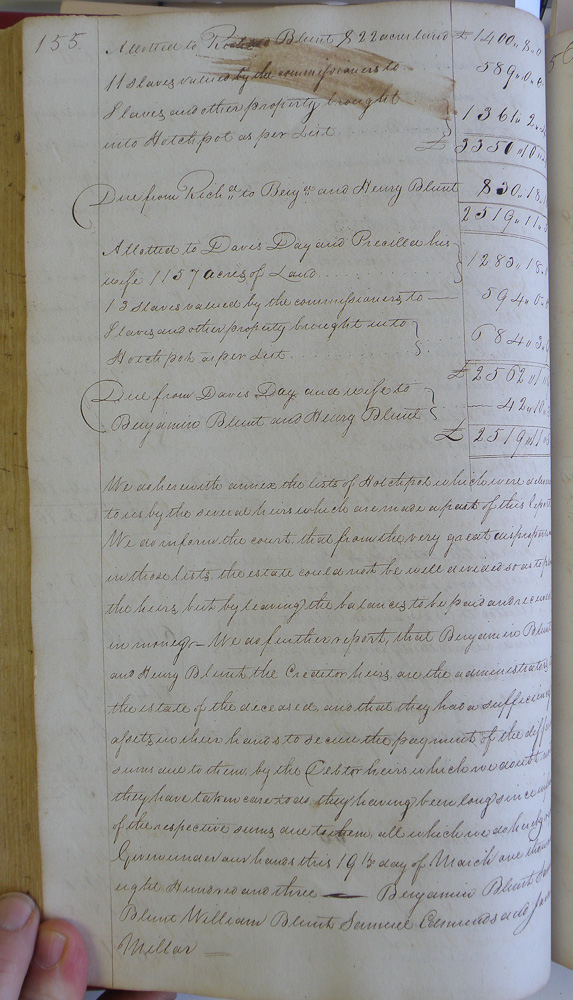 155
Allotted to Richard Blunt 822 acres land £ 1400,, 8,, 0
11 Slaves valued by the commissioners to 589,, 0,,
Slaves and other property brought
into Hotchpot as per List 1361,, 2,,
£ 3350,, 10,,
Due from Rich.d to Benj.n and Henry Blunt 830,, 18,,
2519,, 11,,
Allotted to Davis Day and Precilla his
wife 1157 acres of Land 1283,, 18,,
13 Slaves valued by the commissioners to 594,, 0,,
Slaves and other property brought into
Hotchpot as per List 684,, 3,,
£ 2562,, 1,,
Due from Davis Day and wife to
Benjamin Blunt and Henry Blunt 42,, 10,,
£ 2519,, 11,,
We do herewith annex the lists of Hotchpot which were
to us by the several heirs which are made a part of this
We do inform the court, that from the very great
in those lists, the estate could not be well divided so as to
the heirs, but by leaving the balances to be paid and
in money - We do further report, that Benjamin Blunt
and Henry Blunt the Creditor heirs, are the
the estate of the deceased, and that they had a
assets in their hands to secure the payment of the
sums due to them, by the Debtor heirs which we doubt
they have taken care to do, they having been long since
of the respective sums due to them, all which we do hereby
Given under our hands this 19th day of March one
eight Hundred and three — Benjamin Blunt
Blunt William Blunt Samuel Edmunds
Millar